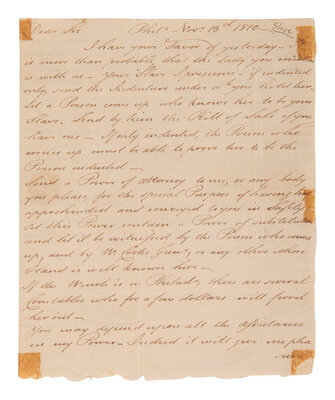 Dear Sir Phila Novr 13th 1810 Slave
I have your favor of yesterday
is more than probable that the Lady you
is with us – Your Slave I presume – if indented
only, send the Indenture under wh. you hold her
Let a Person come up who knows her to be your
Slave, Send by him the Bill of Sale if you
have one – If only indented, the Person who
comes up must be able to prove her to be the
Person indented –
Send a Power of attorney to me, or any body
you please, for the special Purpose of having her
apprehended and conveyed to you in Safety
Let this Power contain a Power of substitution
and let it be witnessed by the Person who comes
up, and by Mr Cooke or any other whose
Hand is well known here –
If the Wench is in Philada, there are several
Constables who for a few dollars will ferret
her out –
You may depend upon all the assistance
in my Power – Indeed it will give me plea
sure